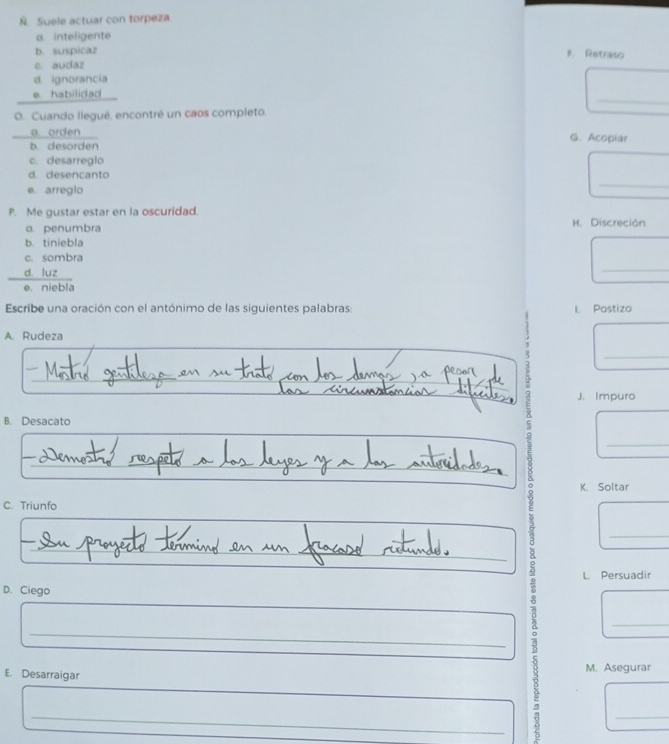 Ñ. Suele actuar con torpeza
a. inteligente
b. suspicaz
c. audaz
d. ignorancia
e. habilidad
O. Cuando llegué, encontré un caos completo.
a. orden
b. desorden
c. desarreglo
d. desencanto
e. arreglo
P. Me gustar estar en la oscuridad.
a. penumbra
b. tiniebla
c. sombra
d. luz
e. niebla
Escribe una oración con el antónimo de las siguientes palabras:
A. Rudeza
- Mostró gentileza en su trato con los demas, a pesar de
las circunstancias dificiles.
B. Desacato
- Demostró respeto a las leyes y a las autoridades.
C. Triunfo
- Su proyecto término en un fracaso rotundo.
D. Ciego
E. Desarraigar
F. Retraso
G. Acopiar
H. Discreción
I. Postizo
J. Impuro
K. Soltar
L. Persuadir
M. Asegurar
Prohibida la reproducción total o parcial de este libro por cualquier medio o procedimiento sin permiso expreso de la